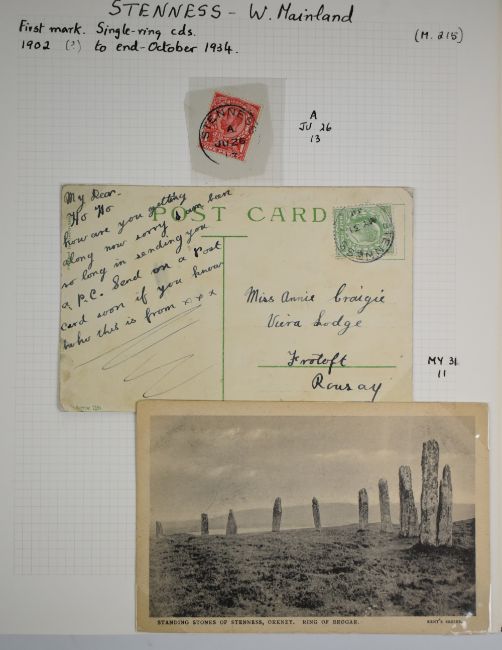 STENNESS - W. Mainland
First mark. Single-ring cds.
(M. 215)
1902 (?) to end-October 1934.
STENNESS
A
JU 26
13
A
JU 26
13
POST CARD
My Dear
Ho Ho
how are you getting
along now sorry I been
so long in sending you
a P.C. Send on a Post
card soon if you know
who this is from x x x
STENNESS
MY 31
Miss Annie Craigie
Viera Lodge
Frotoft
Rousay
MY 31
11
STANDING STONES OF STENNESS, ORKNEY. RING OF BROGAR.
KENT'S SERIES.